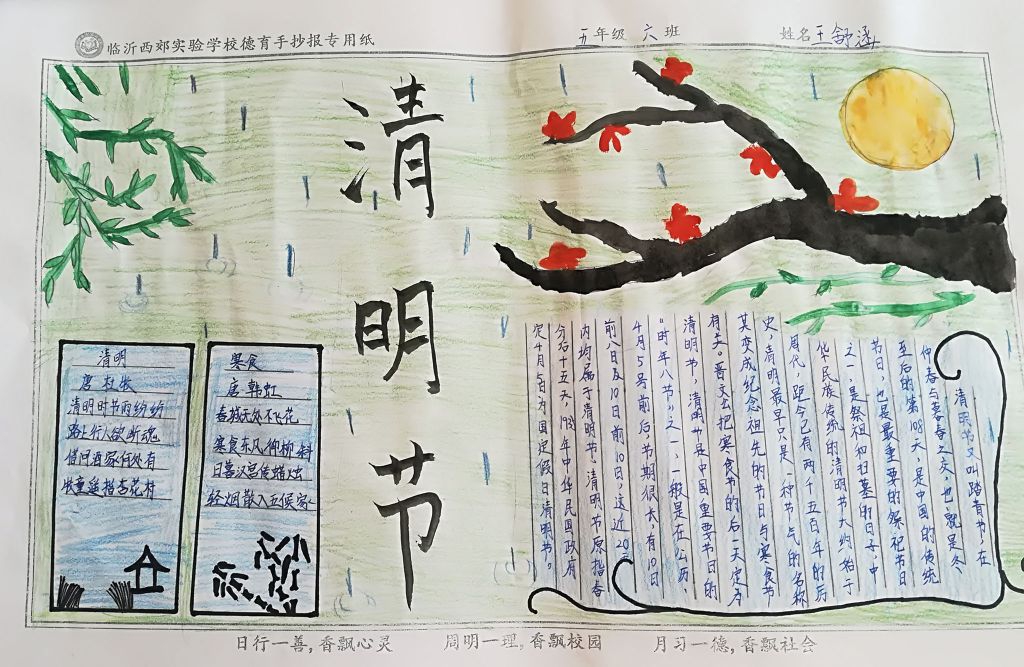 临沂西郊实验学校德育手抄报专用纸
五年级 六班
姓名 王舒涵
清明节
清明
唐 杜牧
清明时节雨纷纷
路上行人欲断魂
借问酒家何处有
牧童遥指杏花村
寒食
唐 韩
春城无处不飞花
寒食东风御柳斜
日暮汉宫传蜡烛
轻烟散入五侯家
清明节又叫踏青节,在
仲春与暮春之交,也就是冬
至后的第108天,是中国的传统
节日,也是最重要的祭祀节日
之一,是祭祖和扫墓的日子,中
华民族传统的清明节大约始于
周代,距今已有两千五百年的历
史,清明最早只是一种节气的名称
其变成纪念祖先的节日与寒食节
有关。晋文公把寒食节的后一天定为
清明节,清明节是中国重要节日的
"时年八节"之一,一般是在公历
4月5号前后节期很长,有10日
前8日及10日前10日,这近20天
内均属于清明节,清明节原指春
分后十五天,1935年中华民国政府
定4月5日为国定假日清明节。
日行一善,香飘心灵
周明一理,香飘校园
月习一德,香飘社会